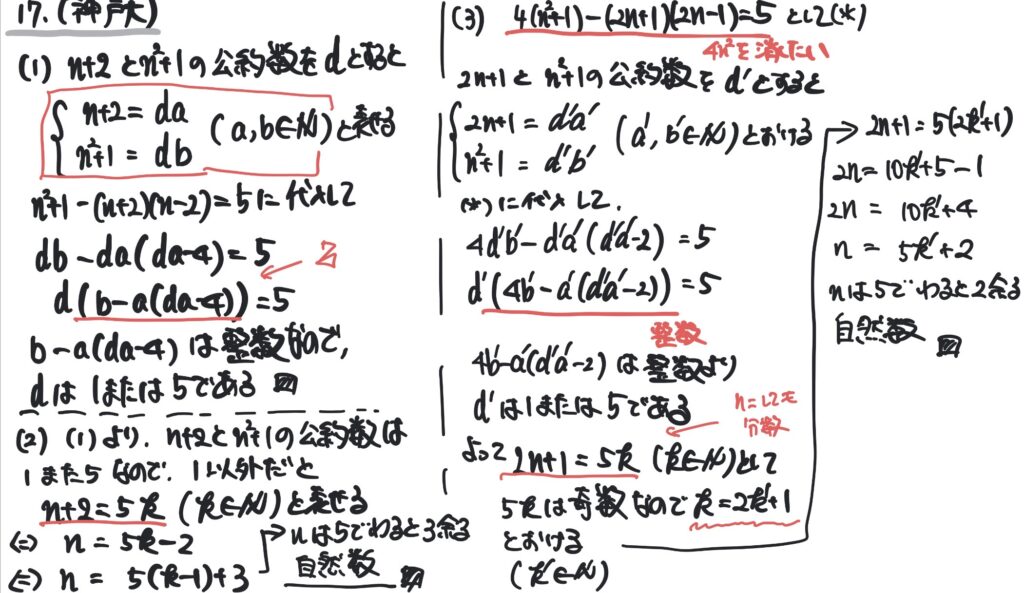 17. (神戸大)
(1) n+2とn²+1の公約数をdとすると
n+2 = da
n²+1 = db
(a,b∈N)と表せる
n²+1-(n+2)(n-2)=5に代入して
db-da(da-4)=5
Z
d(b-a(da-4))=5
b-a(da-4)は整数なので,
dは1または5である
(2) (1)より, n+2とn²+1の公約数は
1また5なので, 1以外だと
n+2=5k (k∈N)と表せる
⇔ n = 5k-2
⇔ n = 5(k-1)+3
nは5でわると3余る
自然数
(3) 4(n²+1)-(2n+1)(2n-1)=5として(*)
4n²を消したい
2n+1とn²+1の公約数をd'とすると
2n+1 = d'a'
n²+1 = d'b'
(a',b'∈N)とおける
(*)に代入して,
4d'b'-d'a'(d'a'-2)=5
d'(4b'-a'(d'a'-2))=5
整数
4b'-a'(d'a'-2)は整数より
d'は1または5である
n=にしても
分数
よって 2n+1=5k (k∈N)として
5kは奇数なのでk=2k'+1
とおける
(k'∈N)
2n+1=5(2k'+1)
2n=10k'+5-1
2n = 10k'+4
n = 5k'+2
nは5でわると2余る
自然数